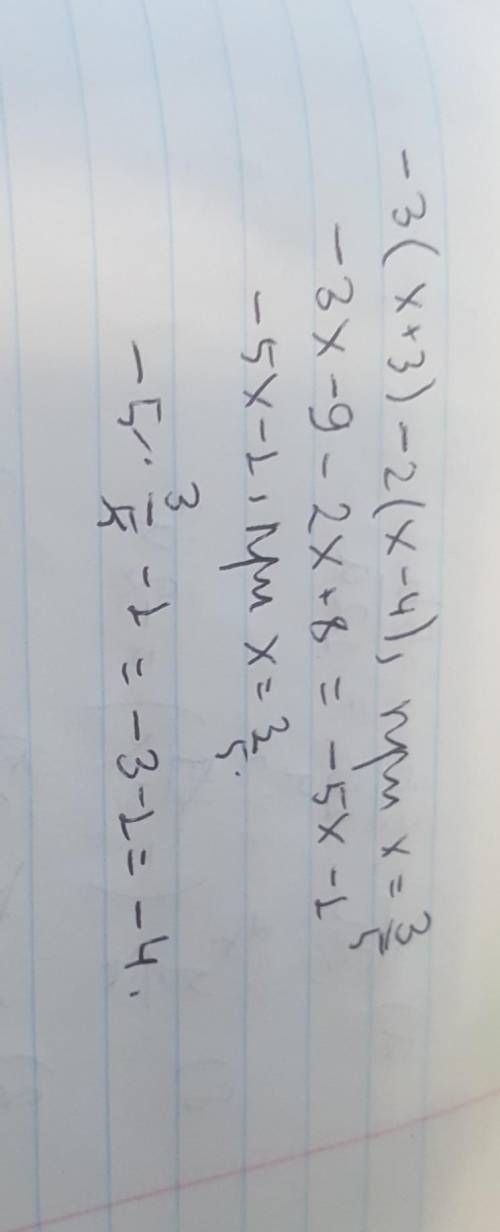 -3(x+3)-2(x-4), при x=3/5
-3x-9-2x+8=-5x-1
-5x-1, при x=3/5.
-5·3/5-1=-3-1=-4.